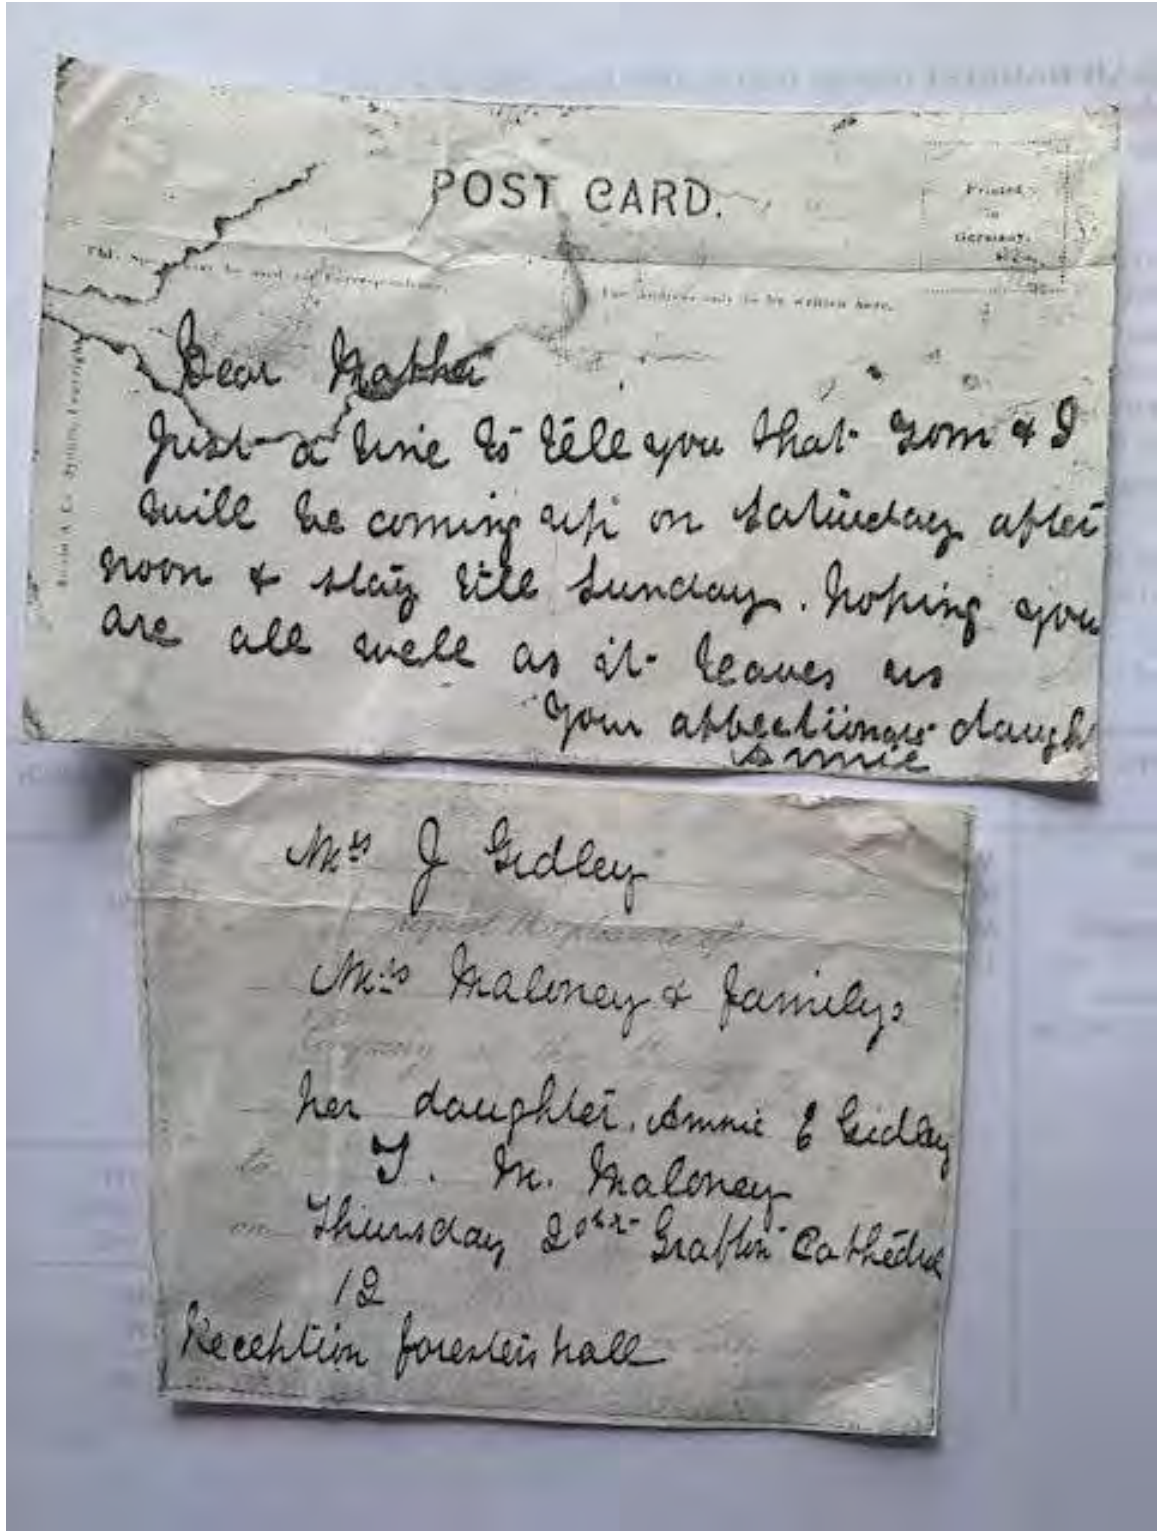 POST CARD.
Printed
in
Germany.
This Space may be used for Correspondence.
The Address only to be written here.
Dear Mother
Just a line to tell you that Tom & I
will be coming up on Saturday after
noon & stay till Sunday. hoping you
are all well as it leaves us
your affectionate daught
Annie
Mrs J Gidley
request the pleasure of
Mrs Maloney & family,
Company
her daughter, Annie E Gidley
to T. M. Maloney
on Thursday 20th Grafton Cathedral
12
Reception foresters hall